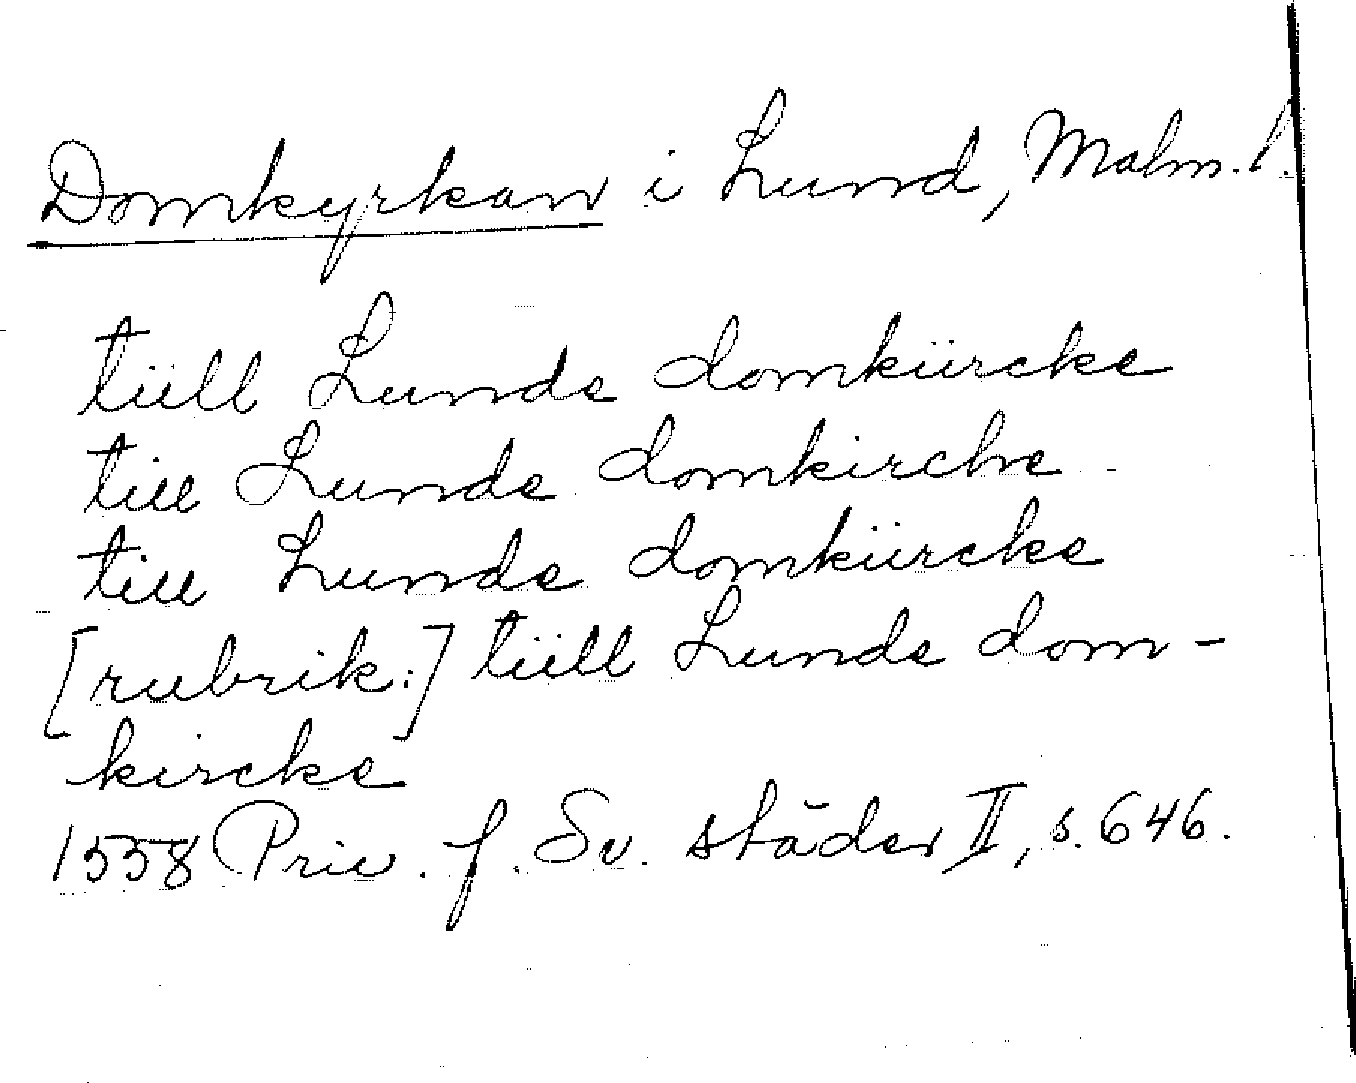 Domkyrkan i Lund, Malm. l.
tüll Lunds domkürcke
till Lunds domkirche
till Lunds domkürcke
[rubrik:] tüll Lunds dom-
kircke
1558 Priv. f. Sv. städer II, s. 646.